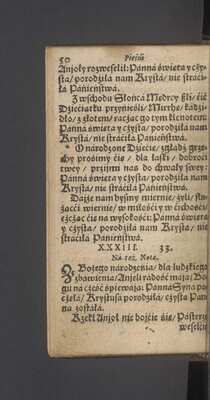 50 Pieśni
Anjoły rozweselił: Panná święta y czy-
sta/ porodziłá nam Krystá/ nie stráci-
łá Pánieństwá.
Z wschodu Słońcá Medrcy śli/ ćić
Dzieciątku przynieśli/ Mirrhę/ kádzi-
dło/ z złotem/ racząc go tym klenotem:
Panná święta y czysta/ porodziłá nam
Krystá/ nie stráćiłá Pánieństwá.
O národzone Dziećię/ zgładź grze-
chy prośimy ćię/ dla łáski/ dobroći
twey/ przijm nas do chwały swey:
Panná święta y czysta/ porodziłá nam
Krystá/ nie stráćiłá Pánieństwá.
Dajże nam byśmy miernie/ żyli/ słu-
żącći wiernie/ w miłośći y w ćichośći/
cżcżąc ćie ná wysokośći: Panná święta
y czysta/ porodziłá nam Krystá/ nie
stráćiłá Pánieństwá.
XXXIII. 33.
Ná też Notę.
Z Bożego národzenia/ dla ludzkiego
zbáwienia/ Anjeli rádość máją/ Bo-
gu ná cześć śpiewáją: Panná Syná po-
częłá/ Krystusá porodziłá/ czystą Pán-
ną zostáłá.
Rzekł Anjoł nie boycie się/ Pásterze
weselcie